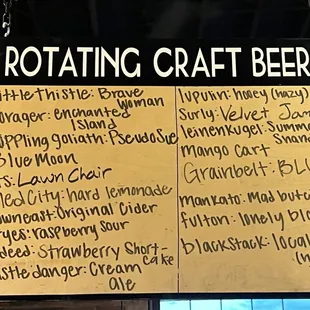 ROTATING CRAFT BEER
ittle Thistle: Brave
Woman
orager: enchanted
Island
oppling goliath: PseudoSue
Blue Moon
rs: Lawn Chair
led City: hard lemonade
wneast: Original Cider
ryes: raspberry sour
deed: Strawberry Short-
cake
astle danger: Cream
ale
lupulin: hooey (hazy)
Surly: Velvet Jam
leinenkugel: Summe
Shand
mango Cart
Grainbelt: BLU
mankato: mad butc
fulton: lonely blo
blackstack: local